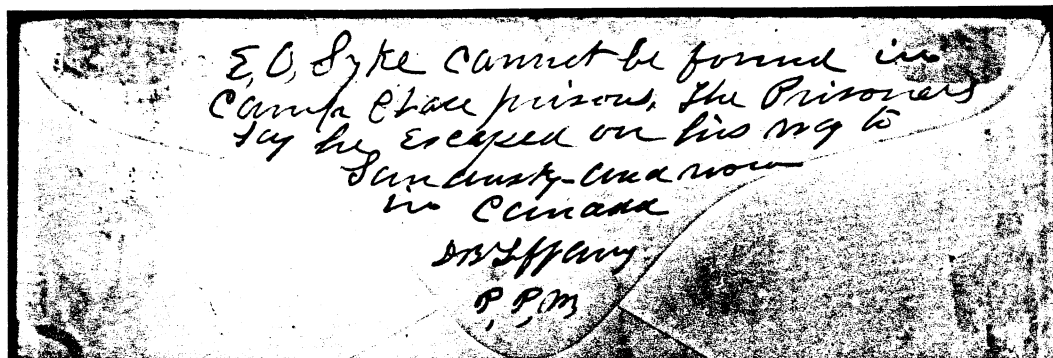 E, O, Syke cannot be found in
Camp Chase prison, The Prisoners
say he, escaped on his way to
Sandusky - and now
in Canada
DB Tiffany
P, P, M,